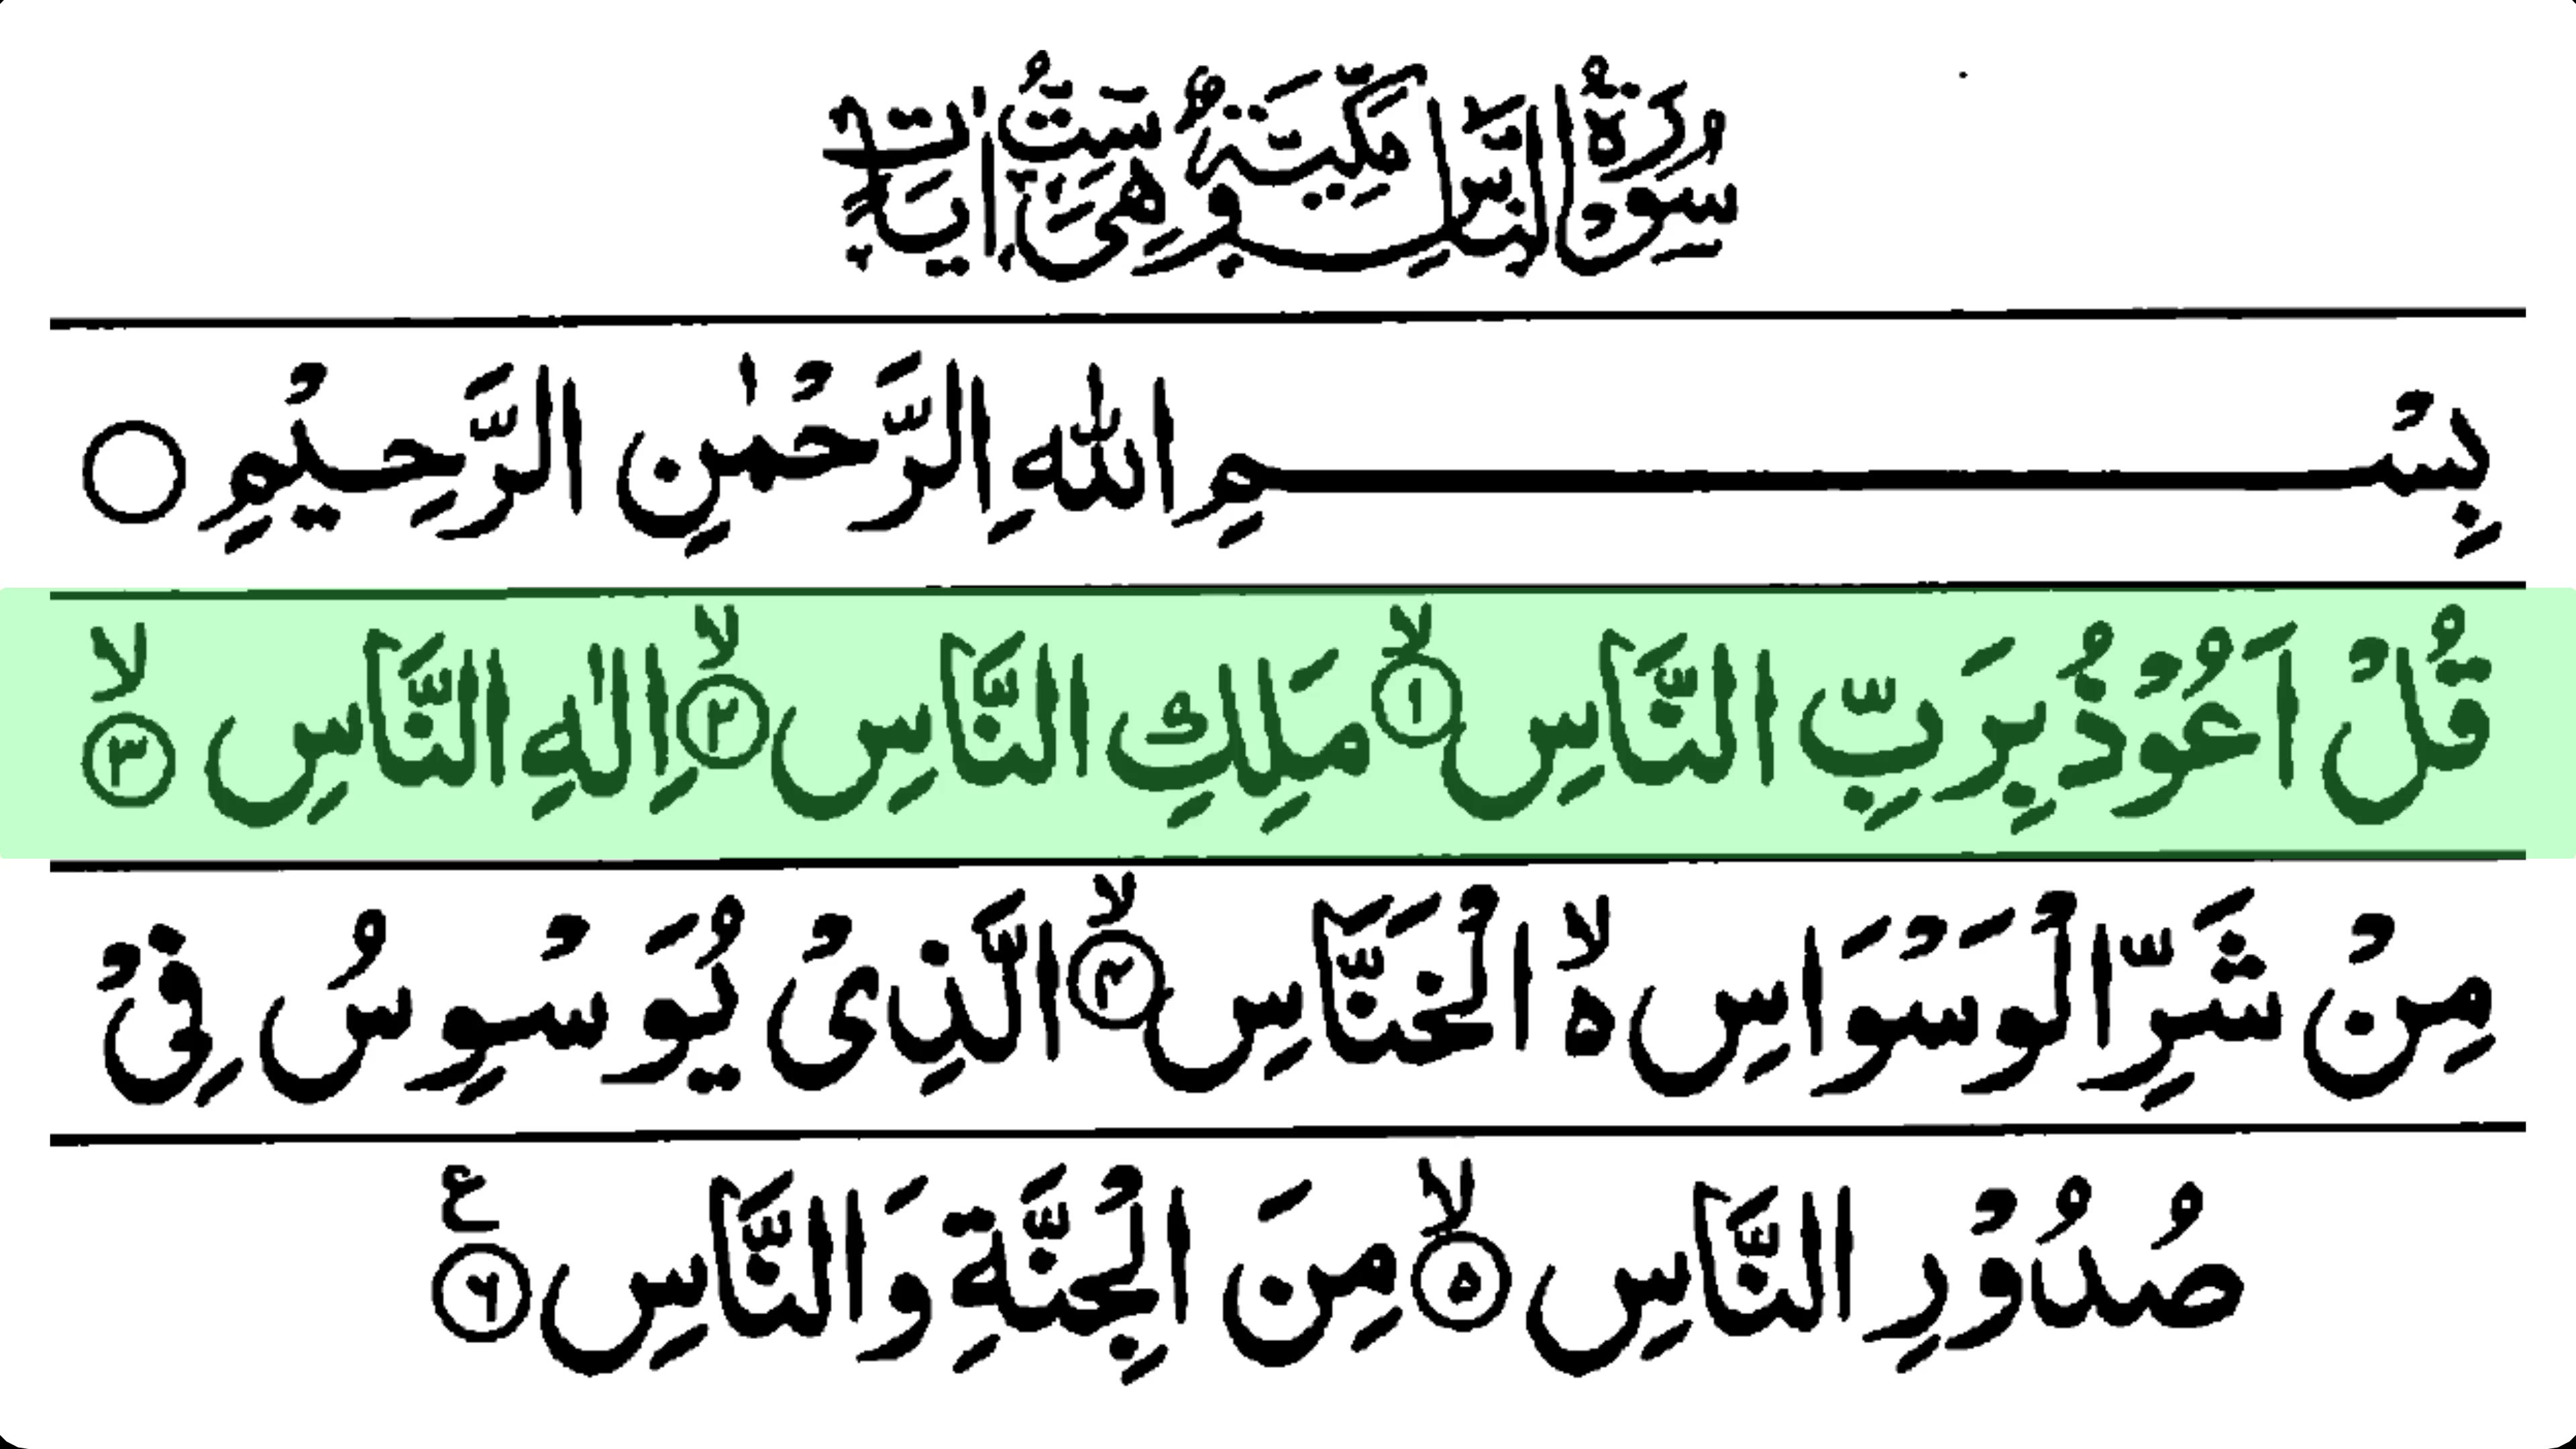 سُوْرَةُ النَّاسِ مَكِّيَّةٌ وَّهِىَ سِتُّ اٰيَاتٍ
بِسْمِ اللهِ الرَّحْمٰنِ الرَّحِيْمِ ○
قُلْ اَعُوْذُ بِرَبِّ النَّاسِ ۙ﴿۱﴾ مَلِكِ النَّاسِ ۙ﴿۲﴾ اِلٰهِ النَّاسِ ۙ﴿۳﴾
مِنْ شَرِّ الْوَسْوَاسِ ۙ۬ ە الْخَنَّاسِ ۙ﴿۴﴾ الَّذِىْ يُوَسْوِسُ فِىْ
صُدُوْرِ النَّاسِ ۙ﴿۵﴾ مِنَ الْجِنَّةِ وَالنَّاسِ ع ﴿۶﴾